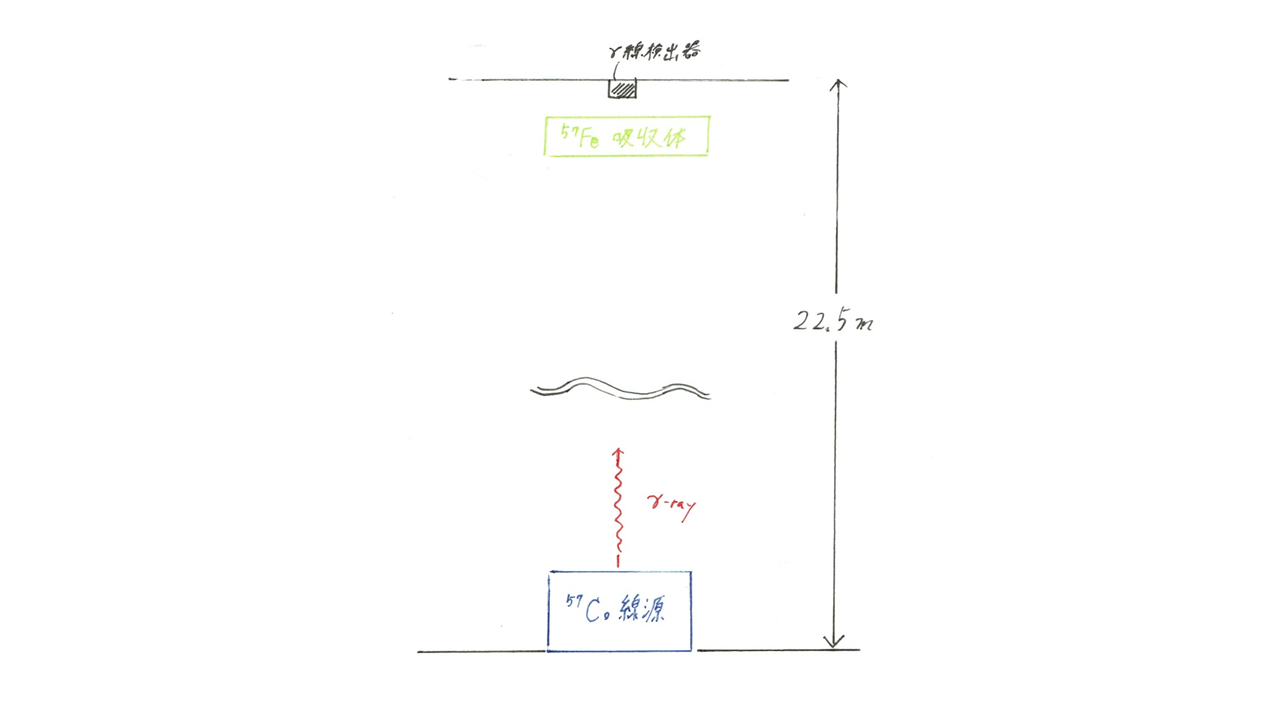 γ線検出器
⁵⁷Fe 吸収体
22.5m
γ-ray
⁵⁷Co 線源